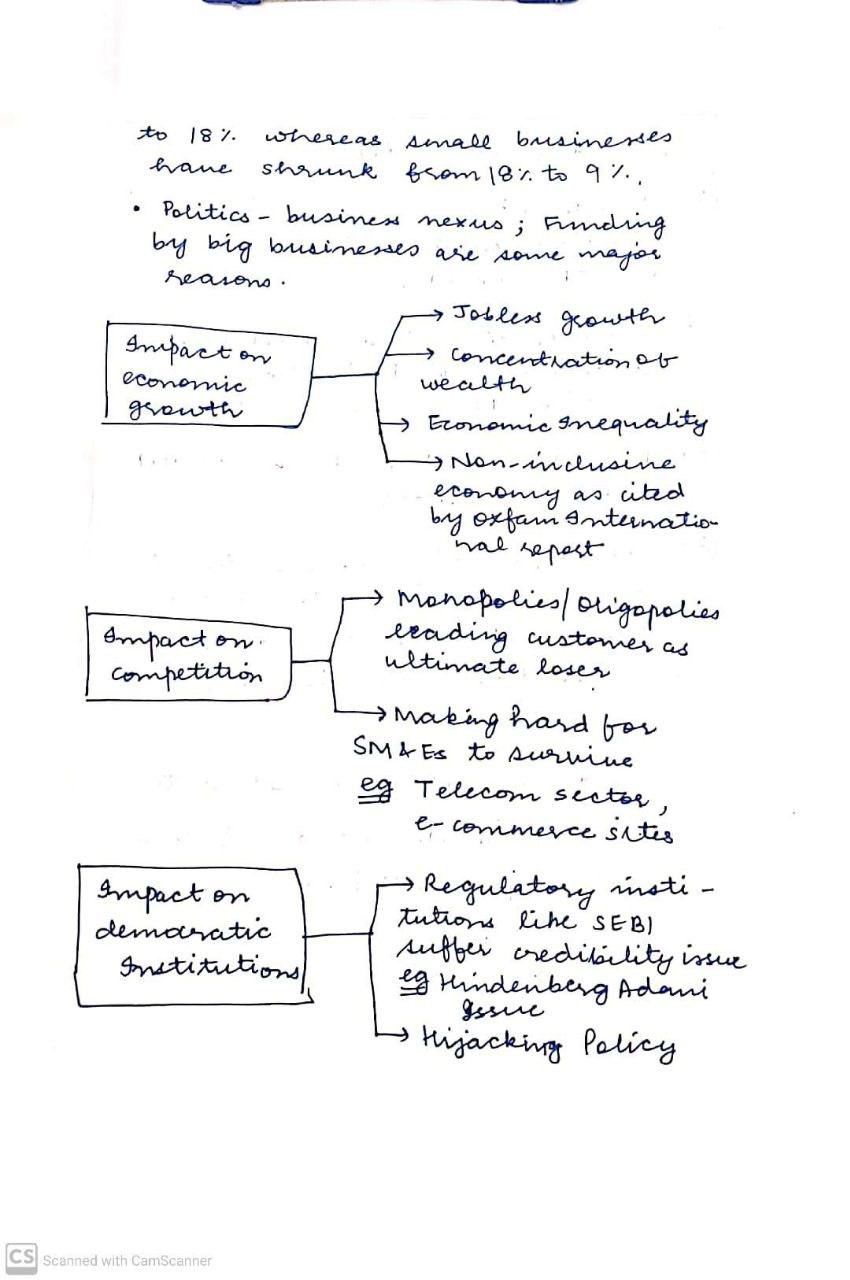 to 18%. whereas small businesses
have shrunk from 18% to 9%.
• Politics - business nexus ; Funding
by big businesses are some major
reasons.
Impact on
economic
growth
→ Jobless growth
→ Concentration of
wealth
→ Economic Inequality
→ Non-inclusive
economy as cited
by Oxfam Internatio-
nal report
Impact on
competition
→ Monopolies/Oligopolies
leading customer as
ultimate loser
→ Making hard for
SM&Es to survive
eg Telecom sector,
e-commerce sites
Impact on
democratic
Institutions
→ Regulatory insti-
tutions like SEBI
suffer credibility issue
eg Hindenberg Adani
Issue
→ Hijacking Policy
CS Scanned with CamScanner